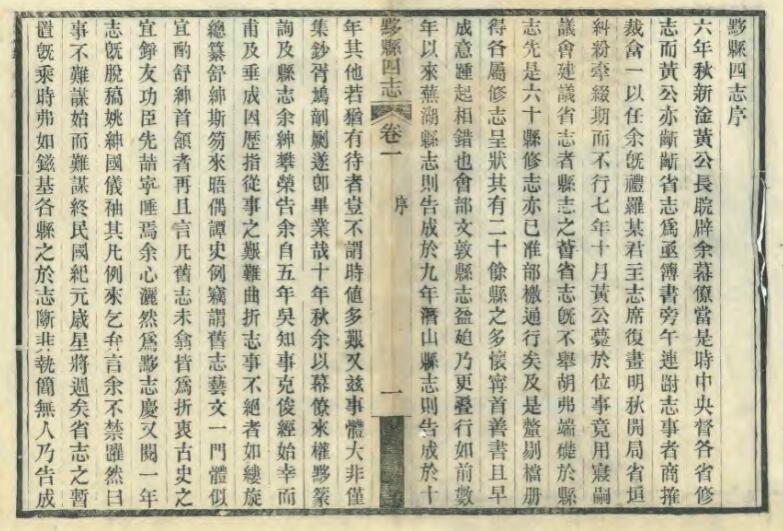 黟縣四志序
六年秋新淦黃公長皖辟余幕僚當是時中央督各省修
志而黃公亦齗齗省志爲亟簿書旁午連尉志事者商搉
裁會一以任余旣禮羅某君主志席復畫明秋開局省垣
糾紛牽綴期而不行七年十月黃公薨於位事竟用寢嗣
議會建議省志者縣志之蕾省志旣不舉胡弗端礎於縣
志先是六十縣修志亦已准部檄通行矣及是釐剔檔册
得各屬修志呈狀其有二十餘縣之多懷寗首善書且早
成意踵起相錯也會部文敦縣志益廹乃更疊行如前數
年以來蕪湖縣志則告成於九年潛山縣志則告成於十
黟縣四志
卷一
序
一
年其他若猶有待者豈不謂時値多艱又玆事體大非僅
集鈔胥鳩剞劂遂卽畢業哉十年秋余以幕僚來權黟篆
詢及縣志余紳攀榮告余自五年吳知事克俊經始幸而
甫及垂成因歷指從事之艱難曲折志事不絕者如縷旋
總纂舒紳斯笏來晤偶譚史例竊謂舊志藝文一門體似
宜酌舒紳首頷者再且言凡舊志未僉皆爲折衷古史之
宜錚友功臣先喆寜唾焉余心灑然爲黟志慶又閱一年
志旣脫稿姚紳國儀袖其凡例來乞弁言余不禁躍然曰
事不難謀始而難謀終民國紀元歲星將週矣省志之暫
置旣乘時弗如鎡基各縣之於志斷非執簡無人乃告成